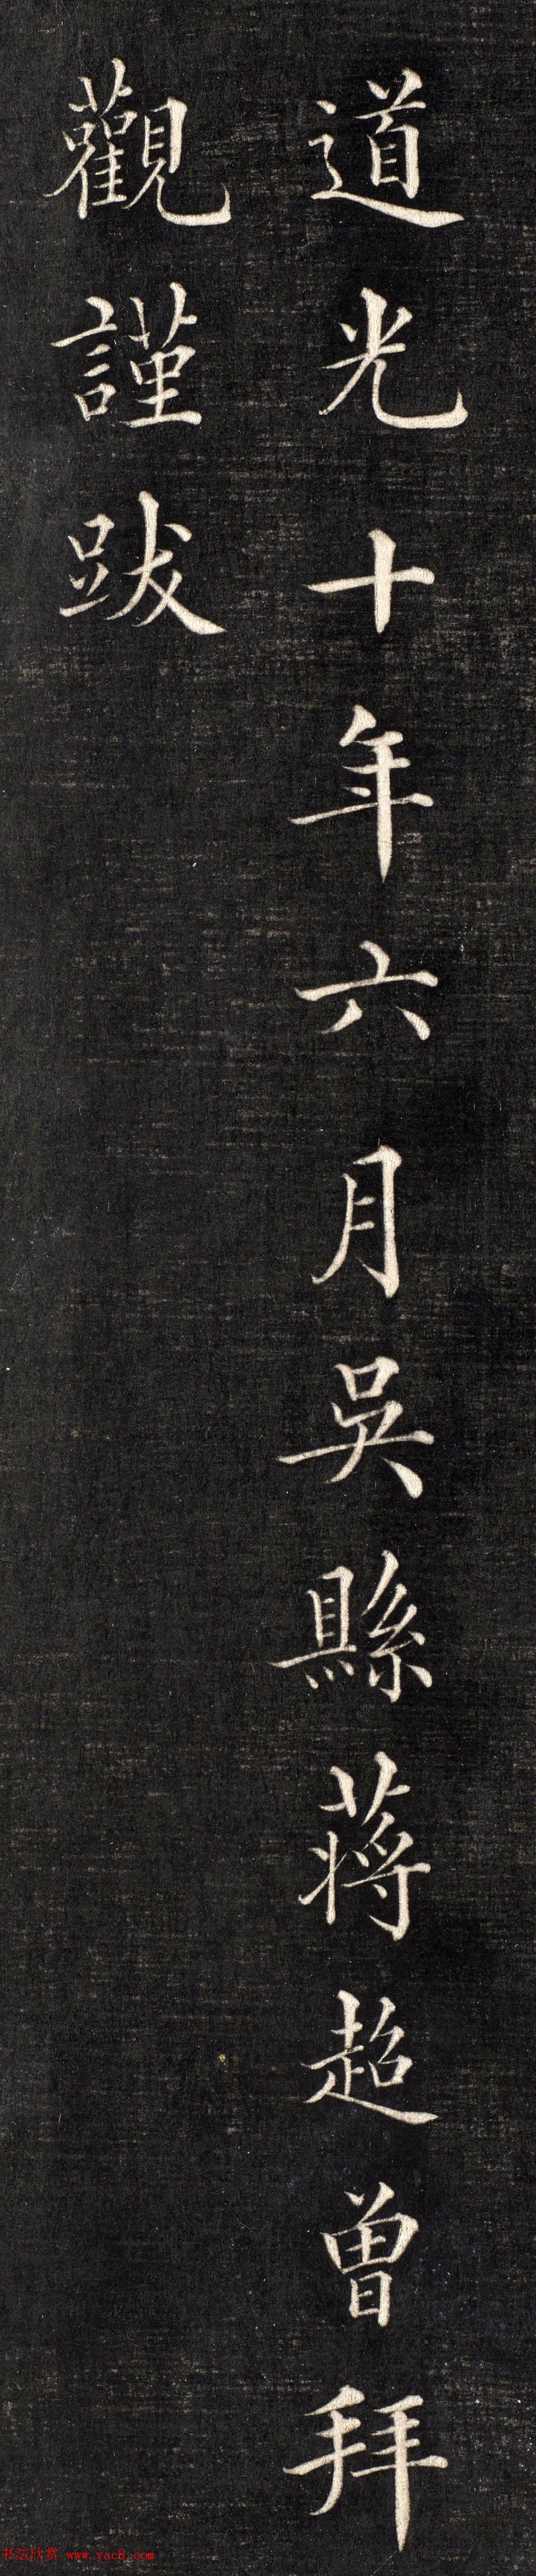 道光十年六月吳縣蔣超曾拜
觀謹跋
书法欣赏 www.yac8.com